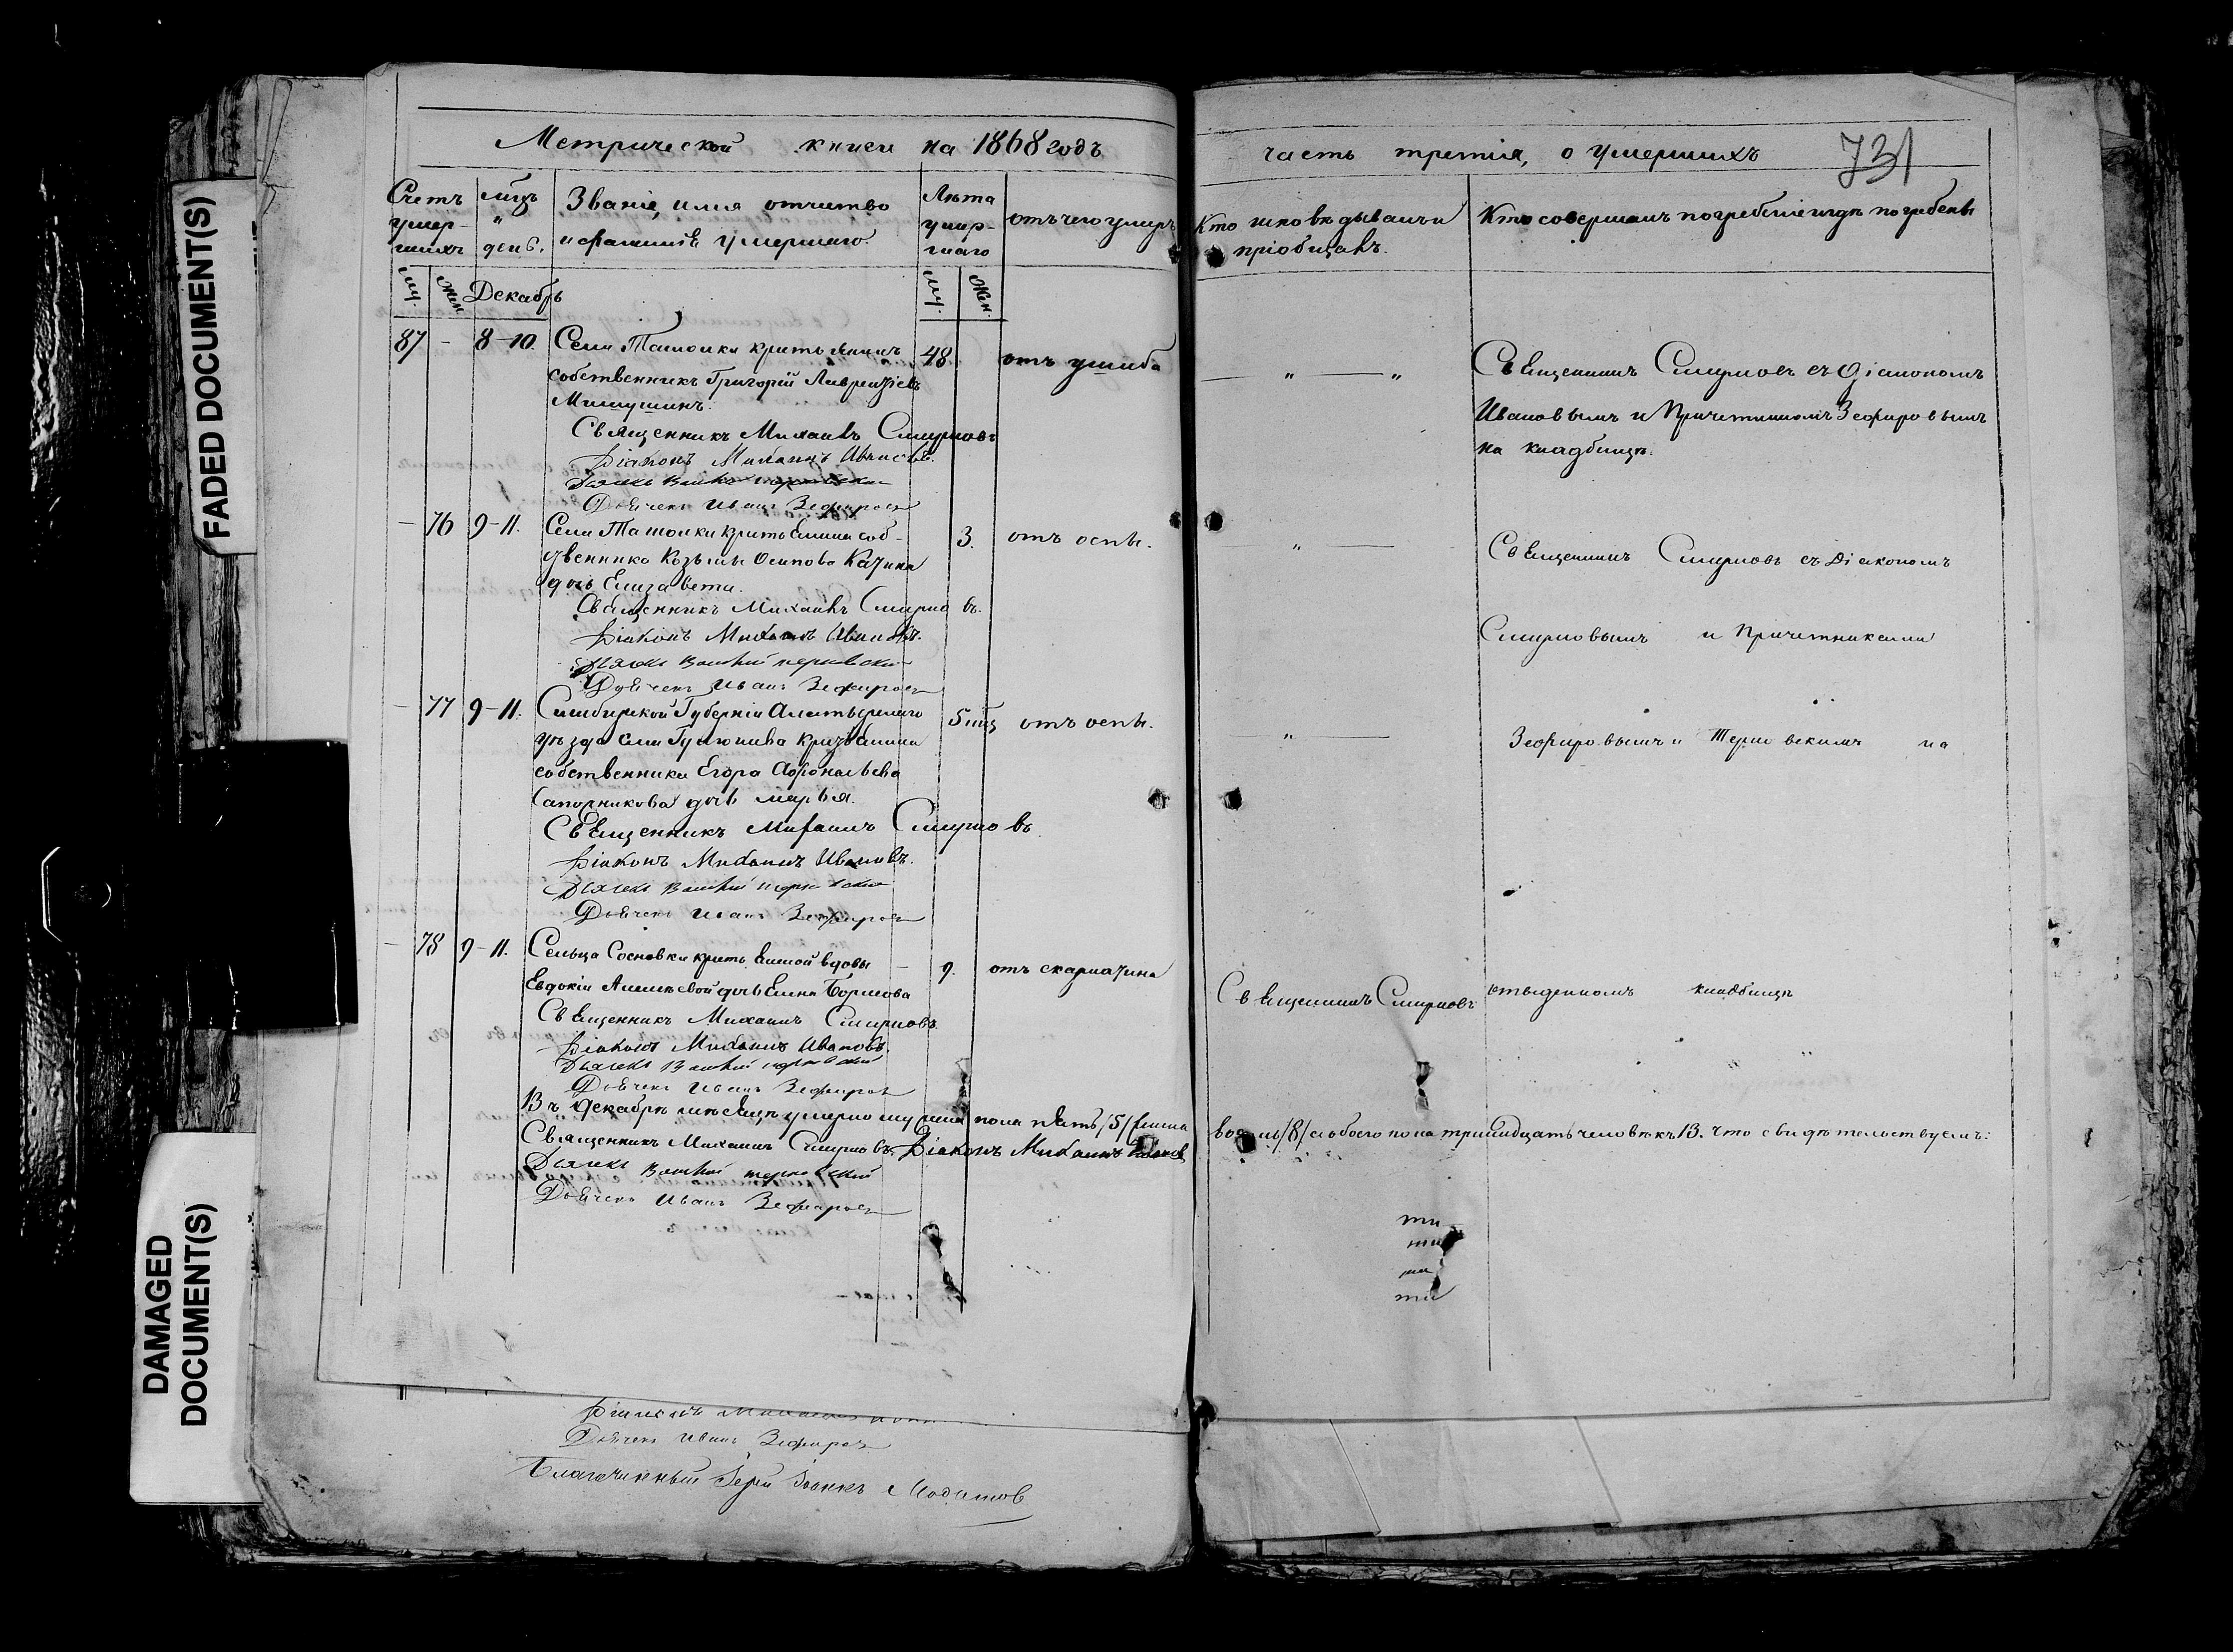 Метрической книги на 1868 годъ
часть третія, о умершихъ 731
Счетъ умер-шихъ
мцъ " день.
Званіе, имя отчество
и фамилія умершаго.
Лѣта умер-шаго
отъ чего умеръ
Кто исповѣдывалъ и
пріобщалъ.
Кто совершалъ погребеніе и гдѣ погребены
му. жен. Декабрь му. жен.
87 - 8-10. Села Ташолки крестьянинъ 48. отъ ушиба
собственникъ Григорій Лаврентіевъ
Мишушинъ.
Священникъ Михаилъ Смирновъ
Діаконъ Михаилъ Ивановъ.
Дьячекъ
Дьячекъ Иванъ Зефировъ
— " — "
Священникъ Смирновъ съ Діакономъ
Ивановымъ и Причетникомъ Зефировымъ
на кладбищѣ.
- 76 9-11. Села Ташолки крестьянина соб- 3. отъ оспы.
ственника Козьмы Осипова Качина
дочь Елизавета.
Священникъ Михаилъ Смирновъ.
Діаконъ Михаилъ Ивановъ.
Дьячекъ Василій Терновскій
Дьячекъ Иванъ Зефировъ
— " —
Священникъ Смирновъ съ Діакономъ
Смирновымъ и Причетниками
- 77 9-11. Симбирской Губерніи Алатырскаго 5 мцъ отъ оспы.
уѣзда села крестьянина
собственника Егора Афонасьева
Сапорникова дочь Марья.
Священникъ Михаилъ Смирновъ
Діаконъ Михаилъ Ивановъ.
Дьячекъ Василій Терновскій
Дьячекъ Иванъ Зефировъ
— " —
Зефировымъ и Терновскимъ на
- 78 9-11. Сельца Сосновки крестьянской вдовы — 9. отъ скарлатина
Евдокіи Алексѣевой дочь Елена Борисова
Священникъ Михаилъ Смирновъ.
Діаконъ Михаилъ Ивановъ.
Дьячекъ Василій Терновскій
Дьячекъ Иванъ Зефировъ
Священникъ Смирновъ
отведенномъ кладбищѣ
Въ Декабрѣ мѣсяцѣ умерло мужска пола пять /5/ женска восмь /8/ а обоего пола тринадцать человѣкъ 13. что свидѣтельствуемъ:
Священникъ Михаилъ Смирновъ. Діаконъ Михаилъ Ивановъ
Дьячекъ Василій Терновскій
Дьячекъ Иванъ Зефировъ
ти
ти
ти
ти
Діаконъ
Дьячекъ Иванъ Зефировъ
Благочинный Іерей Іоаннъ
FADED DOCUMENT(S)
DAMAGED
DOCUMENT(S)